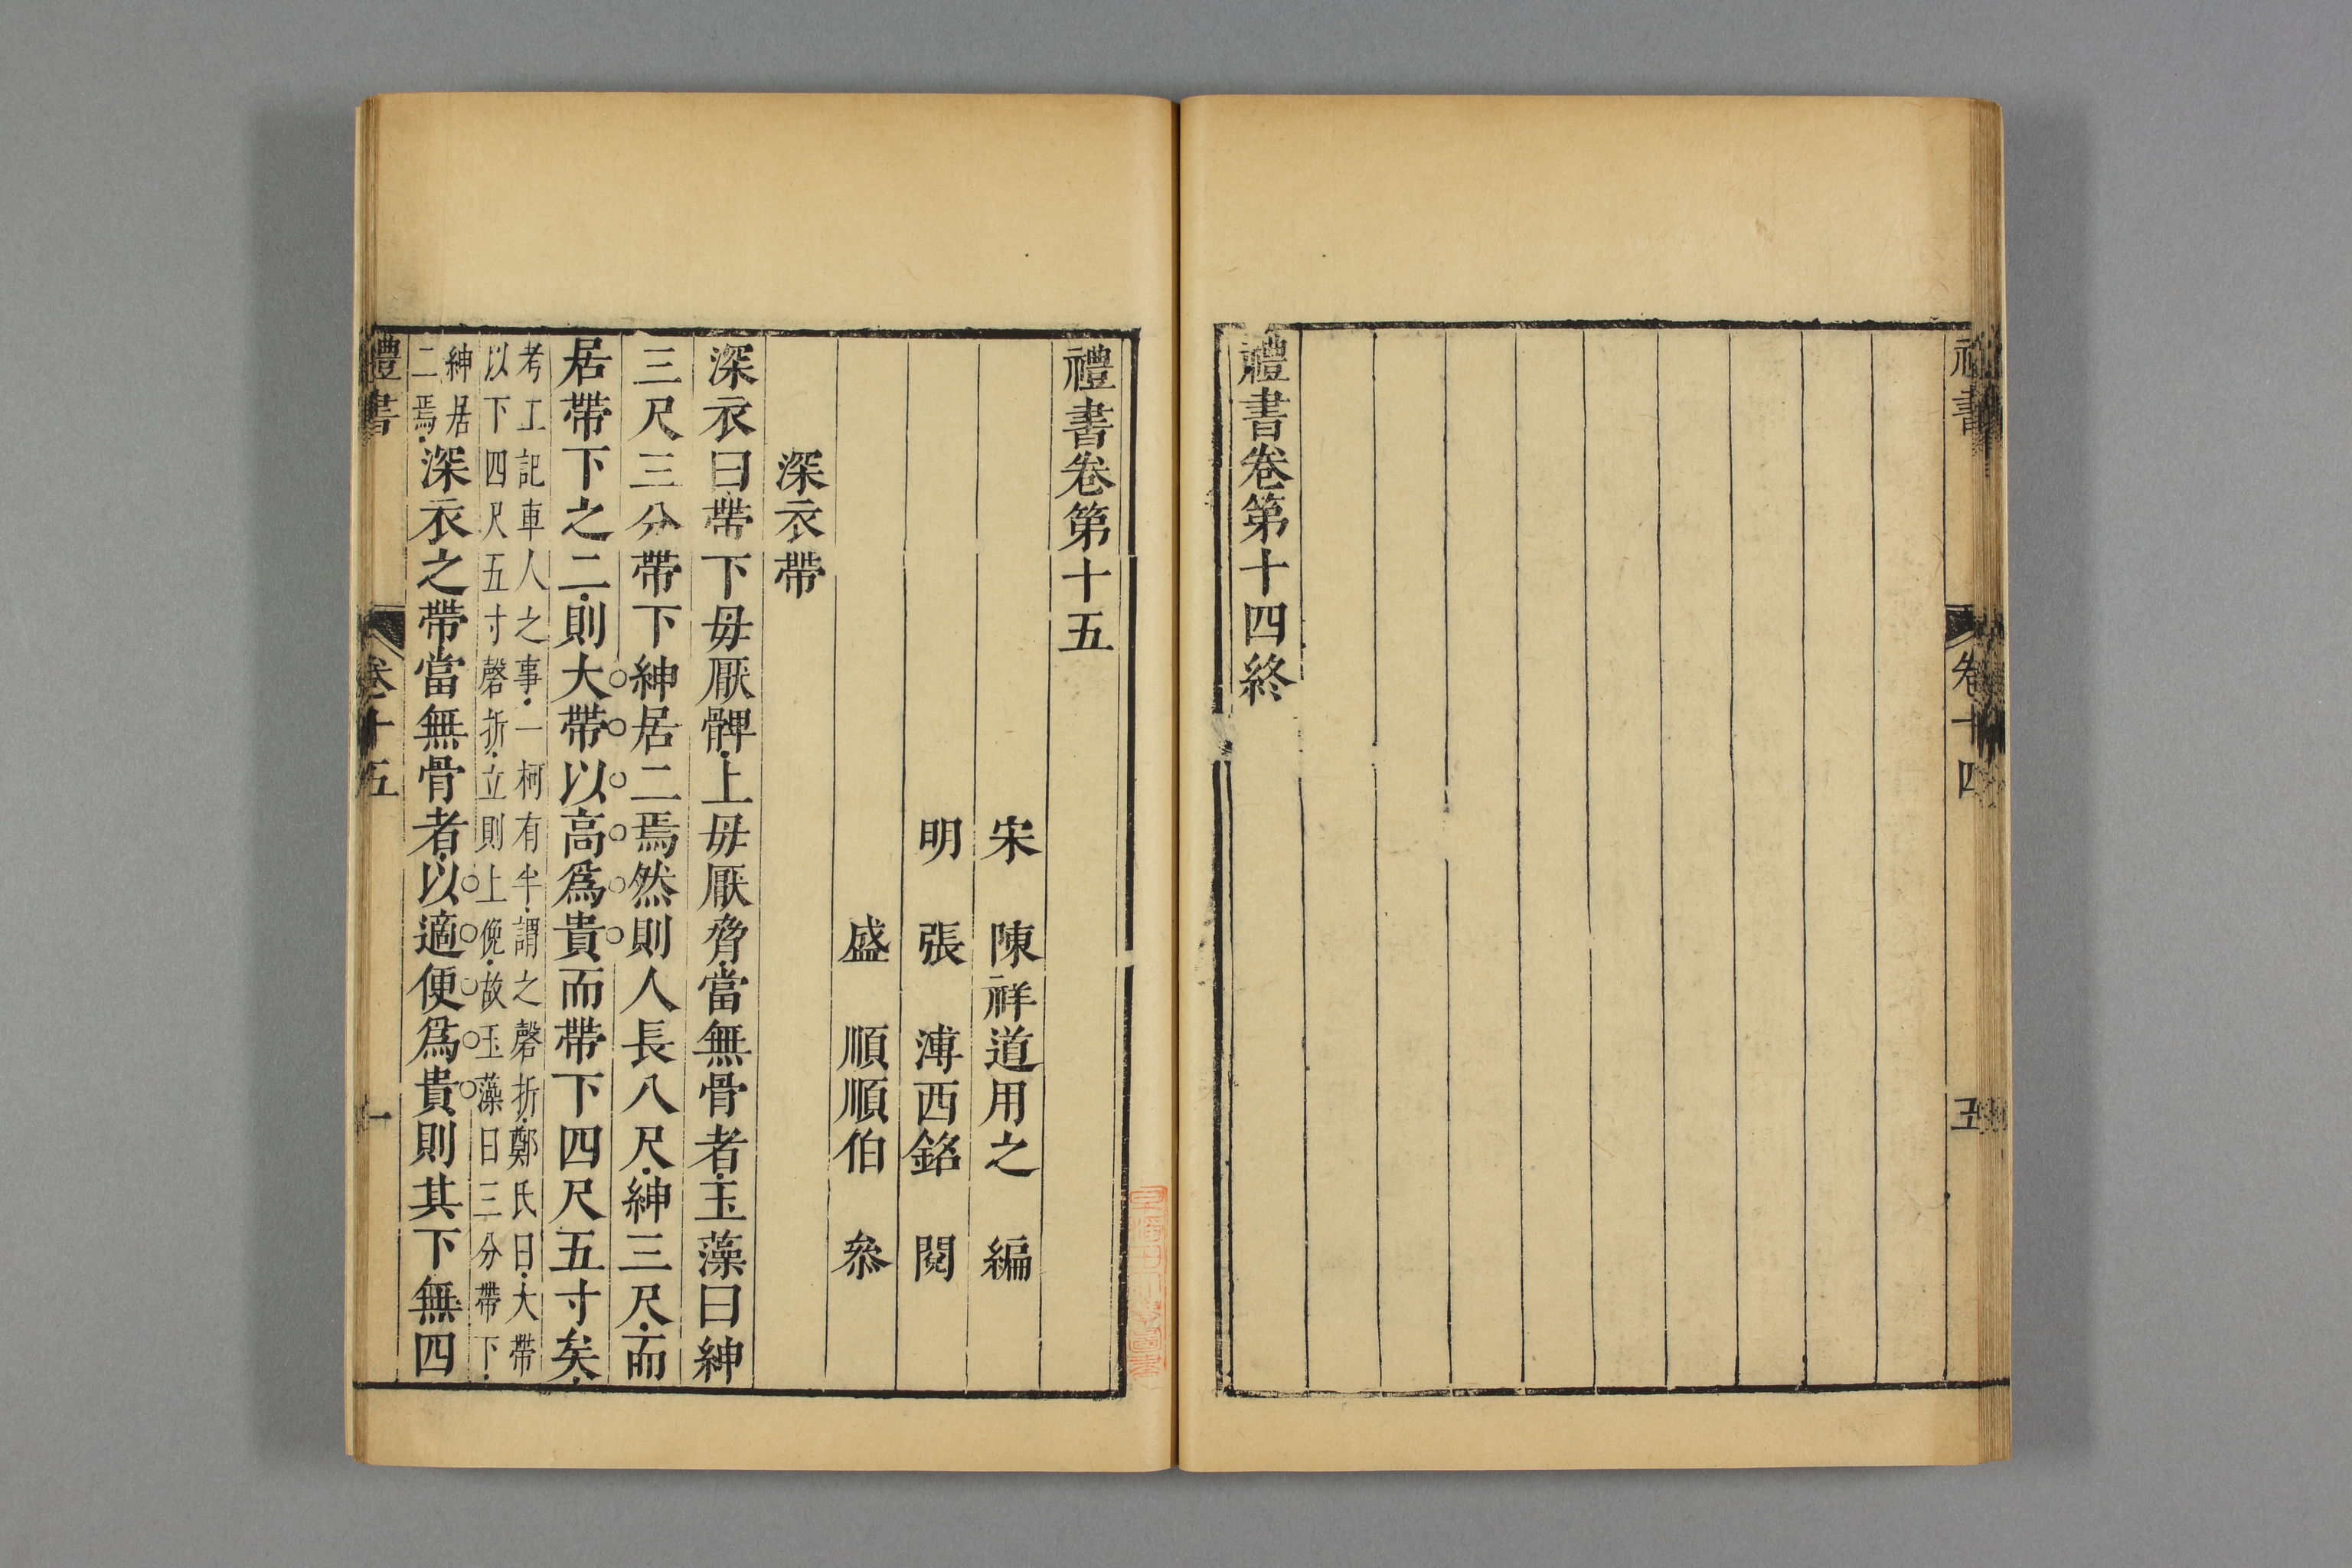 禮書
卷十四
五
禮書卷第十四終
禮書卷第十五
宋 陳祥道用之 編
明 張 溥西銘 閱
盛 順順伯 叅
深衣帶
深衣曰帶下毋厭髀上毋厭脅當無骨者玉藻曰紳
三尺三分帶下紳居二焉然則人長八尺紳三尺而
居帶下之二則大帶以高爲貴而帶下四尺五寸矣
考工記車人之事一柯有半謂之磬折鄭氏曰大帶
以下四尺五寸磬折立則上俛故玉藻曰三分帶下
紳居
二焉
深衣之帶當無骨者以適便爲貴則其下無四
禮書
卷十五
一